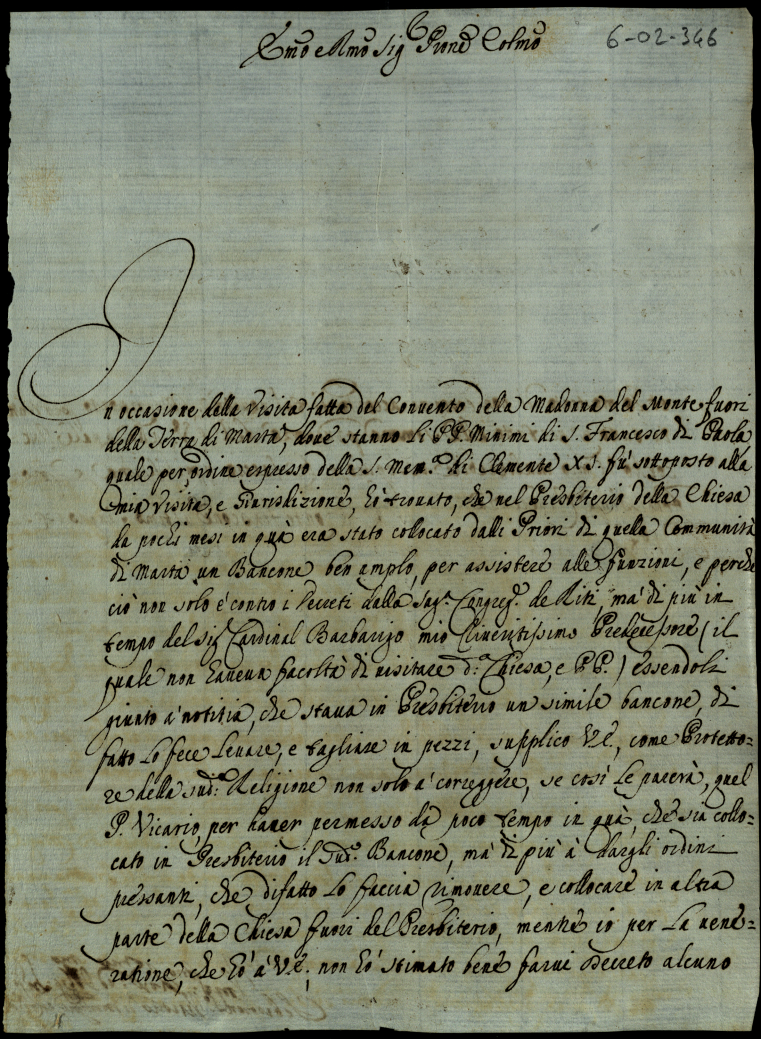 Emo e Rmo Sig.r Prone Colmo
6-02-346
In occasione della visita fatta del Convento della Madonna del Monte fuori
della Terra di Marta, dove stanno li PP. Minimi di S. Francesco di Paola,
quale per ordine espresso della S. Mem.a di Clemente XI. fù sottoposto alla
mia visita, e Giurisdizione, hò trovato, che nel Presbiterio della Chiesa
da pochi mesi in quà era stato collocato dalli Priori di quella Communità
di Marta un Bancone ben amplo, per assistere alle funzioni, e perche
ciò non solo è contro i Decreti della Sag.a Congreg.e de Riti, mà di più in
tempo del Sig.r Cardinal Barbarigo mio Riveritissimo Predecessore (il
quale non haveva facoltà di visitare d.a Chiesa, e PP.) essendoli
giunto à notitia, che stava in Presbiterio un simile bancone, di
fatto lo fece levare, e tagliare in pezzi, supplico V.E., come Protetto=
re della sud.a Religione non solo à correggere, se così le parerà, quel
P. Vicario per haver permesso da poco tempo in quà, che sia collo=
cato in Presbiterio il sud.o Bancone, mà di più à dargli ordini
pressanti, che difatto lo faccia rimovere, e collocare in altra
parte della Chiesa fuori del Presbiterio, mentre io per la vene=
ratione, che hò à V.E., non hò stimato bene farvi decreto alcuno